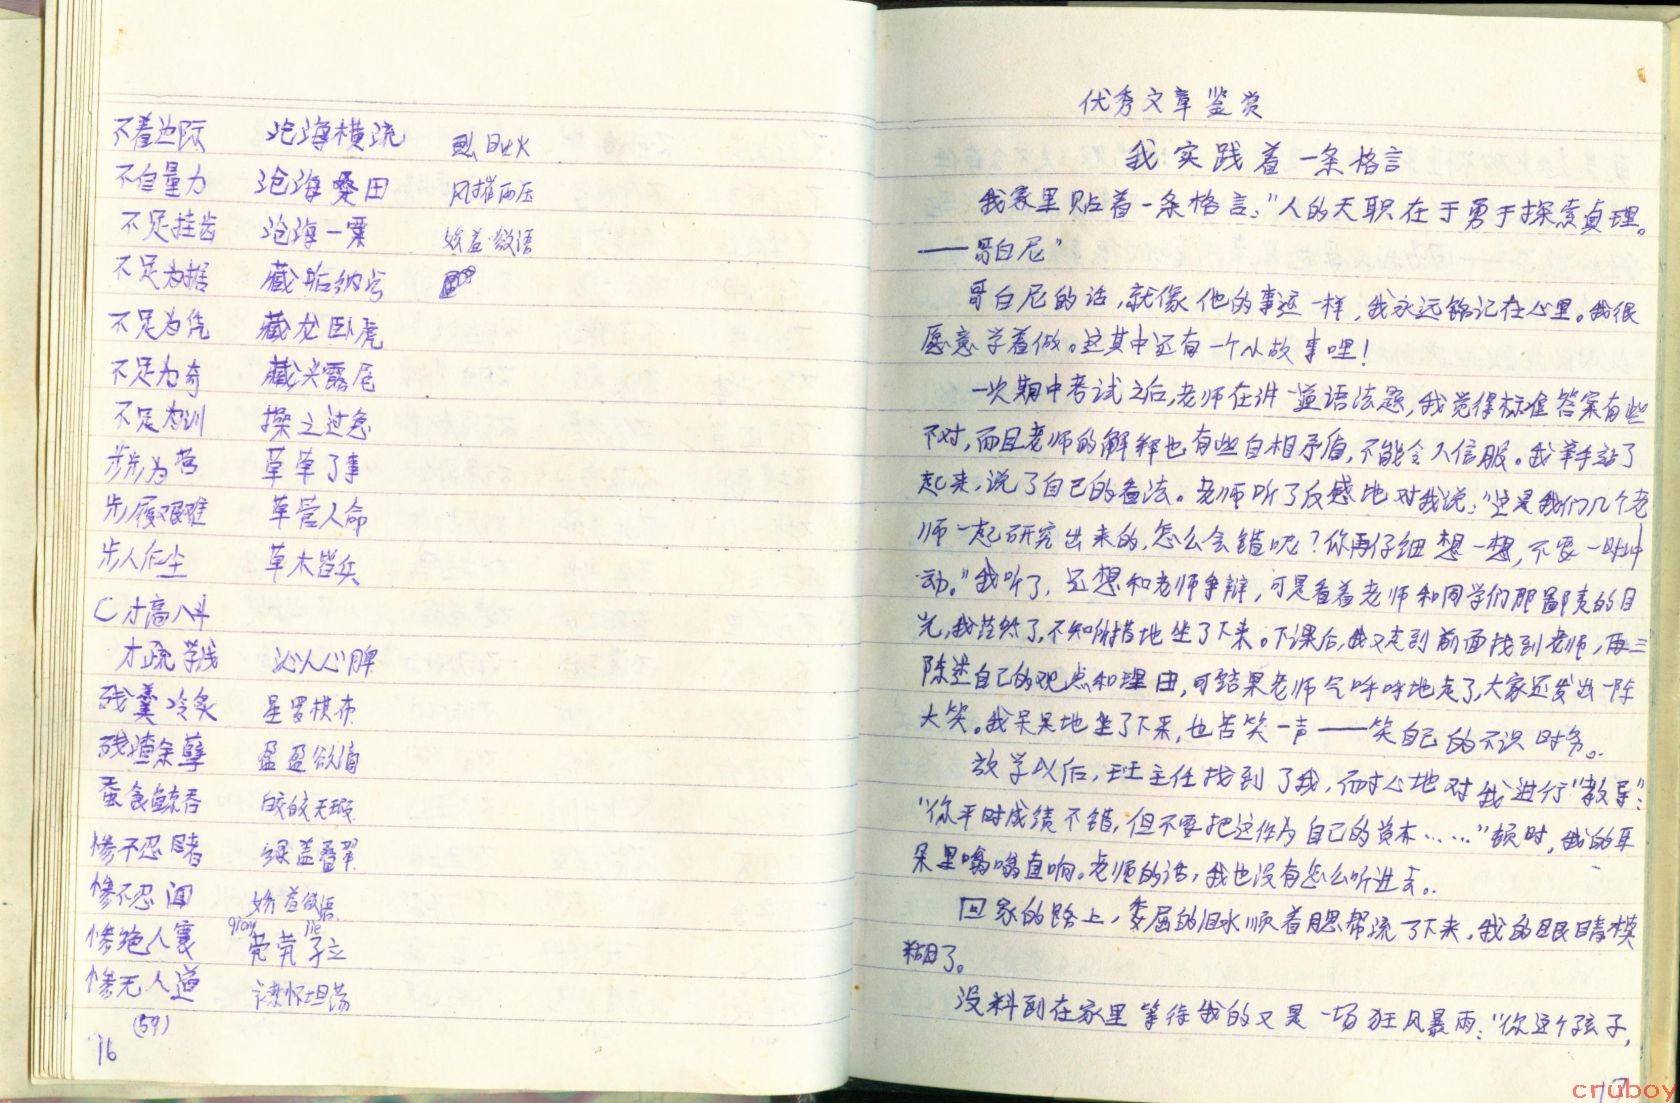 不着边际 沧海横流 烈日吐火
不自量力 沧海桑田 风摧雨压
不足挂齿 沧海一粟 娇羞欲语
不足为据 藏垢纳污
不足为凭 藏龙卧虎
不足为奇 藏头露尾
不足为训 操之过急
步步为营 草草了事
步履艰难 草菅人命
步人后尘 草木皆兵
C 才高八斗
才疏学浅 沁人心脾
残羹冷炙 星罗棋布
残渣余孽 盈盈欲滴
蚕食鲸吞 皎皎无瑕
惨不忍睹 绿盖叠翠
惨不忍闻 娇羞欲语
qiong jie
惨绝人寰 茕茕孑立
惨无人道 襟怀坦荡
(59)
16
优秀文章鉴赏
我实践着一条格言
我家里贴着一条格言："人的天职在于勇于探索真理。
——哥白尼"
哥白尼的话，就像他的事迹一样，我永远铭记在心里。我很
愿意学着做。这其中还有一个小故事哩！
一次期中考试之后，老师在讲一道语法题，我觉得标准答案有些
不对，而且老师的解释也有些自相矛盾，不能令人信服。我举手站了
起来，说了自己的看法。老师听了反感地对我说："这是我们几个老
师一起研究出来的，怎么会错呢？你再仔细想一想，不要一时冲
动。"我听了，还想和老师争辩，可是看着老师和同学们那鄙夷的目
光，我茫然了，不知所措地坐了下来。下课后，我又走到前面找到老师，再三
陈述自己的观点和理由，可结果老师气呼呼地走了，大家还发出一阵
大笑。我呆呆地坐了下来，也苦笑一声——笑自己的不识时务。
放学以后，班主任找到了我，耐心地对我进行"教导"：
"你平时成绩不错，但不要把这作为自己的资本……"顿时，我的耳
朵里嗡嗡直响。老师的话，我也没有怎么听进去。
回家的路上，委屈的泪水顺着腮帮流了下来，我的眼睛模
糊了。
没料到在家里等待我的又是一场狂风暴雨："你这个孩子，
17
cruboy